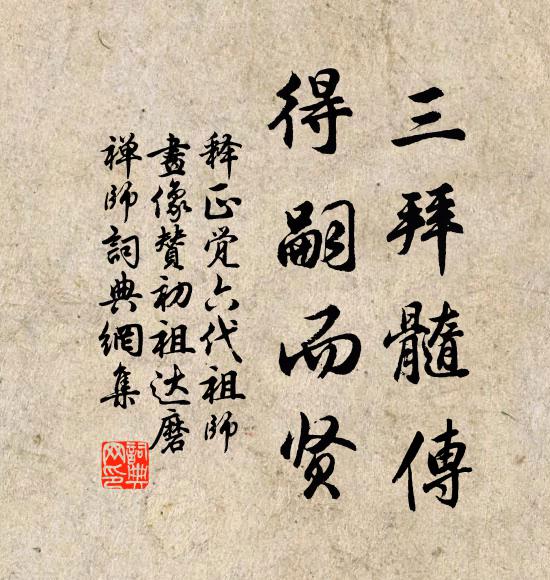 三拜髓傳
得嗣而贤
释正觉六代祖師
畫像赞初祖达磨
禅師詞典網集
詞典網印